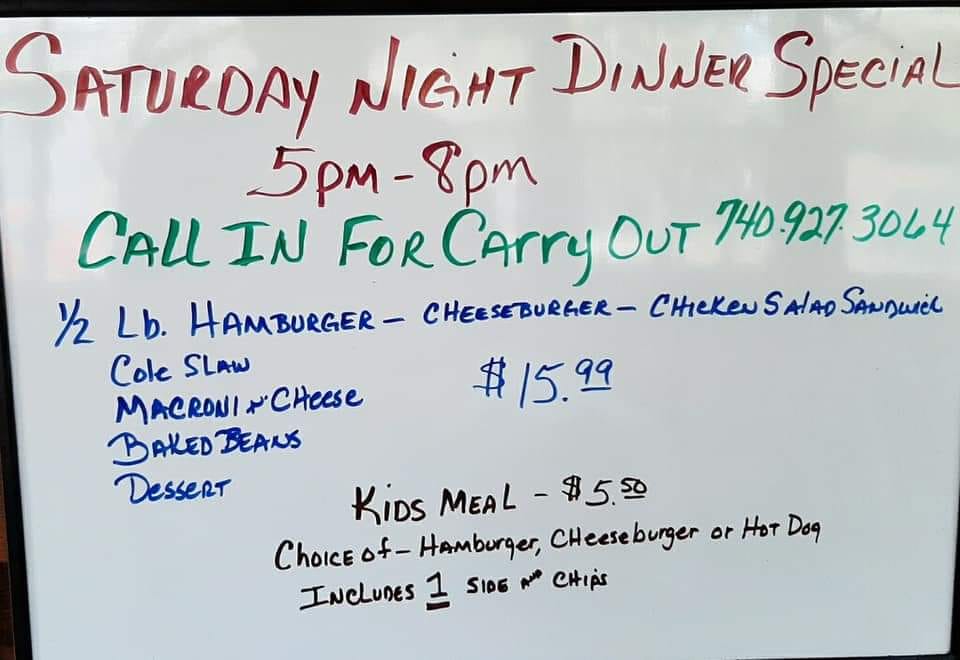 SATURDAY NIGHT DINNER SPECIAL
5pm - 8pm
CALL IN FOR CArry OUT 740.927.3064
1/2 Lb. HAMBURGER - CHEESEBURGER - CHICKEN SALAD SANDWICH
Cole SLAW
$15.99
MACRONI N' CHeese
BAKED BEANS
DesseRT
KIDS MEAL - $5.50
CHOICE of - HAMburger, CHeeseburger or HOT Dog
INCLUDES 1 SIDE AND CHIPS